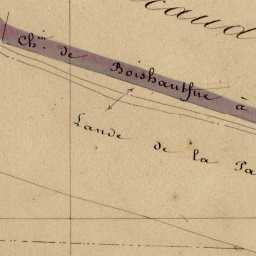 caud
Ch.in de Boishautfue à
Lande de la Pa